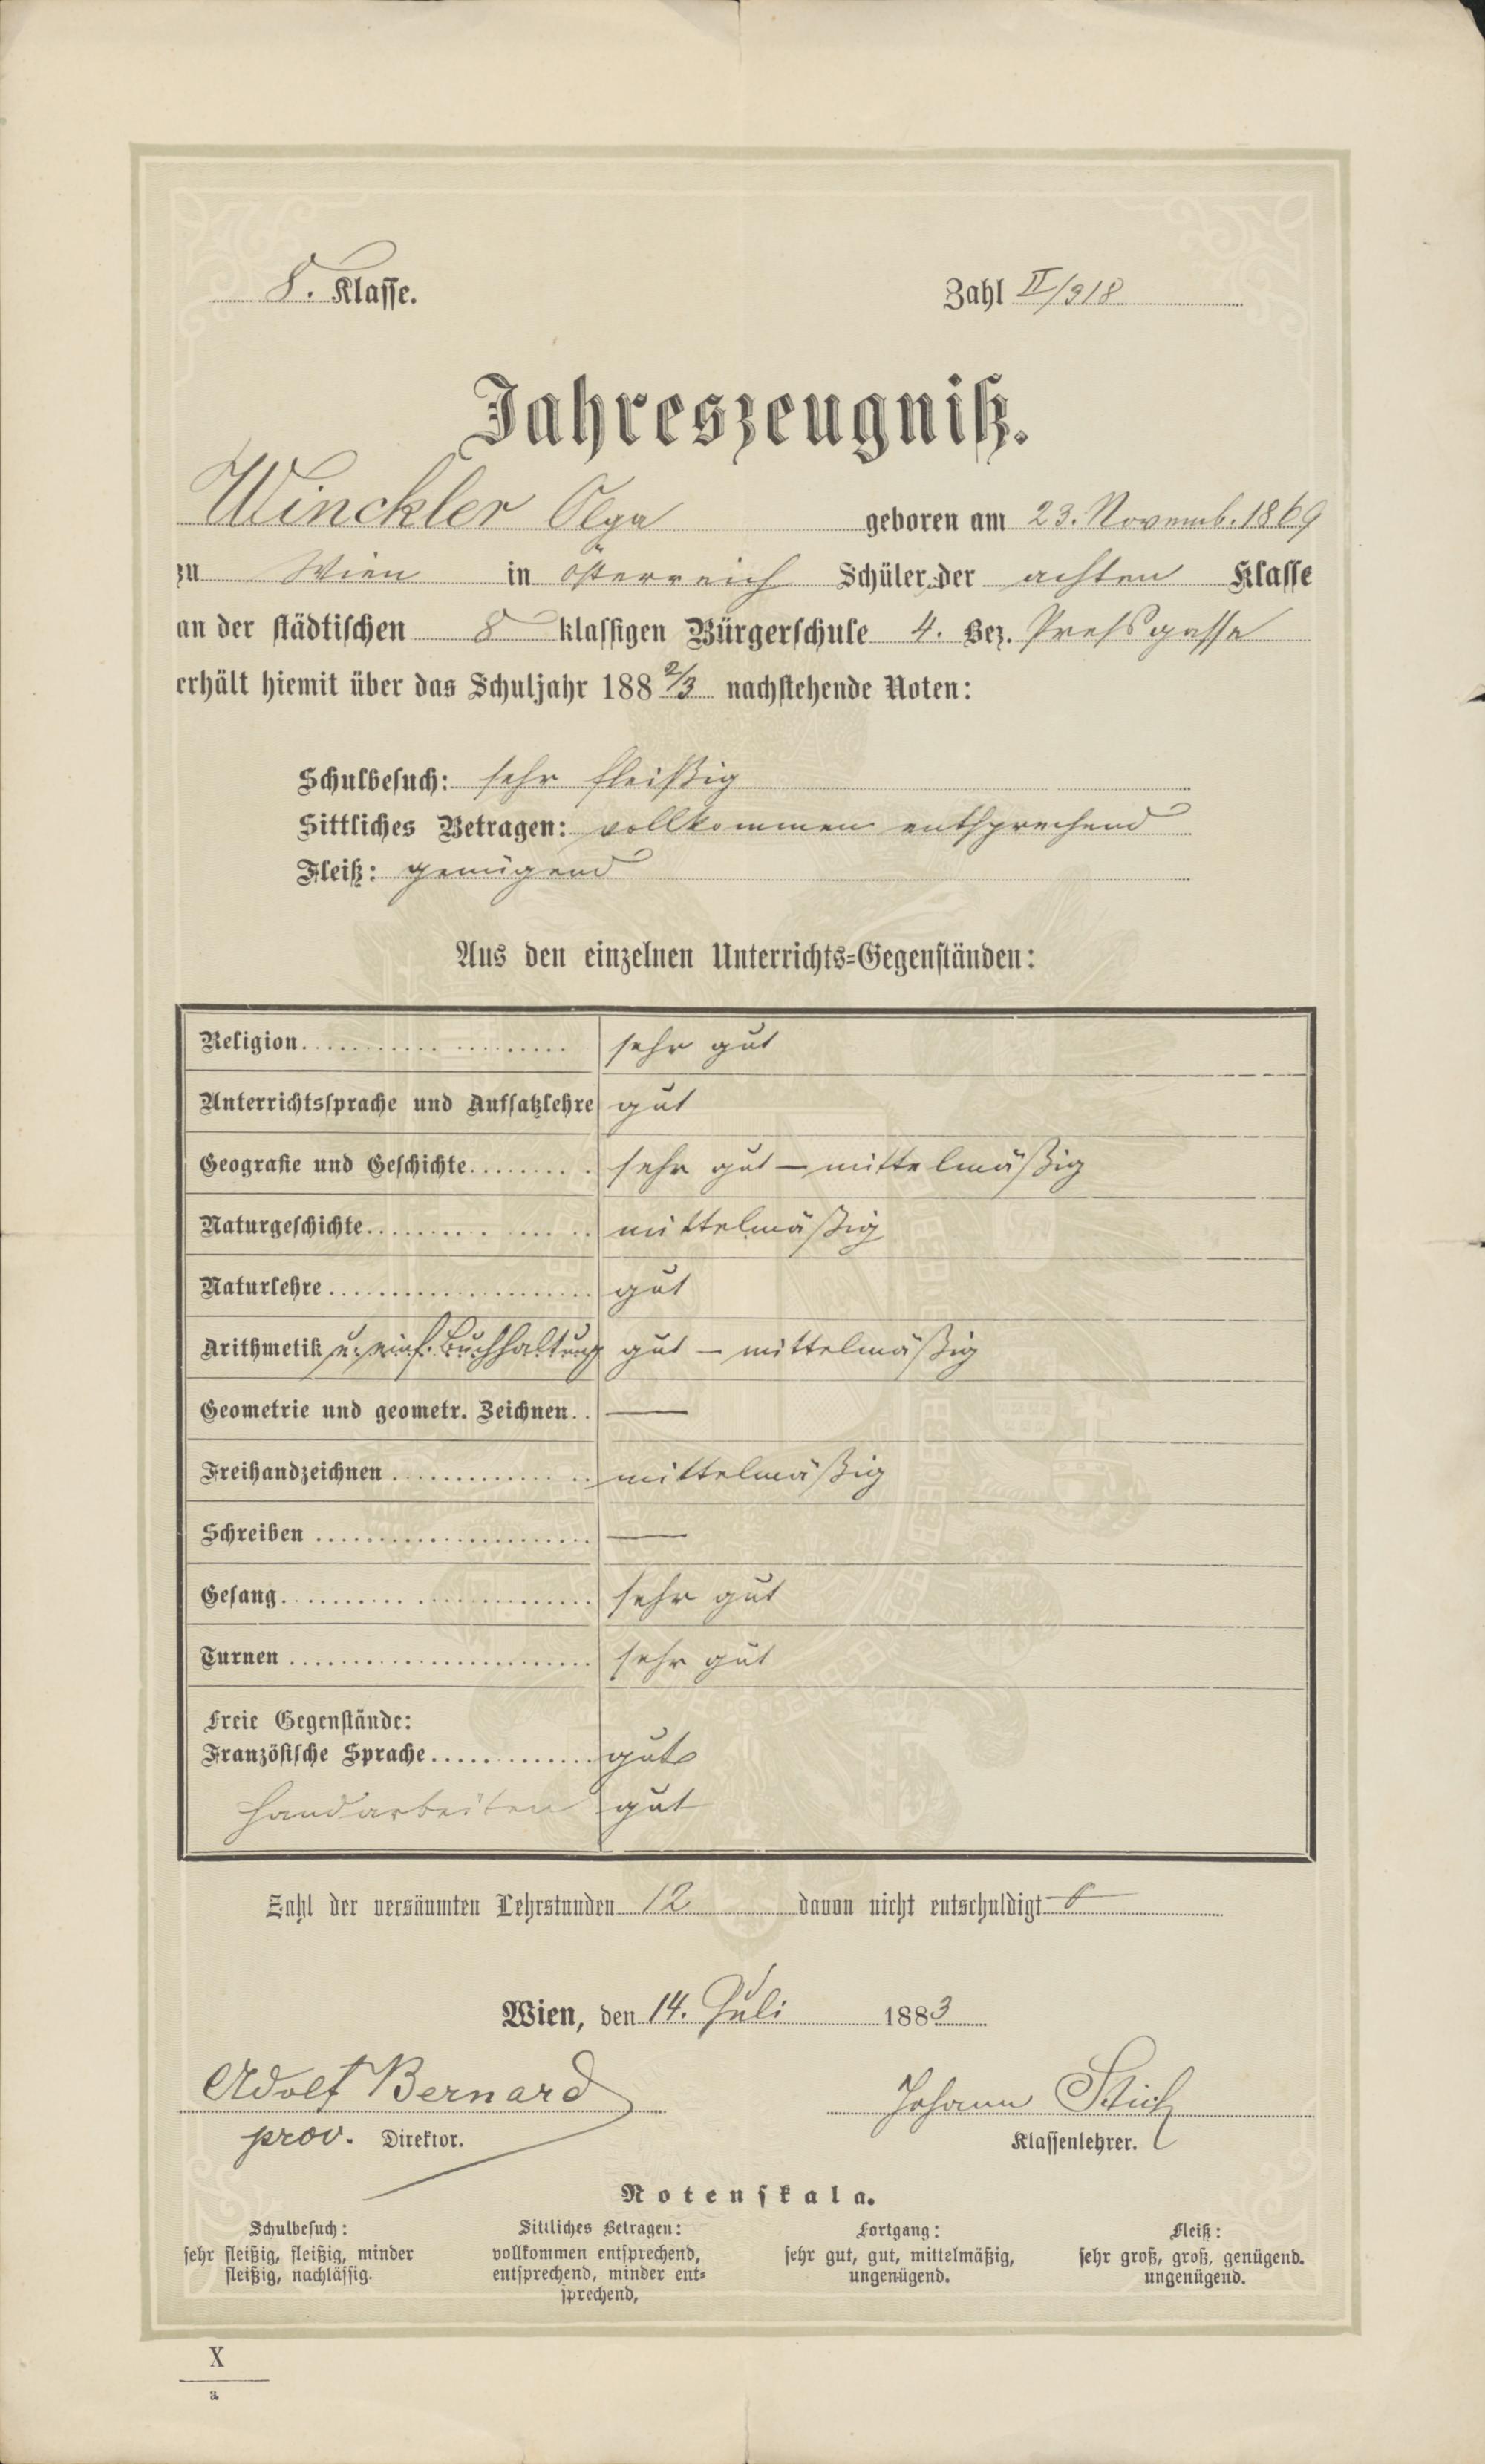 8. Klasse.
Zahl II/918
Jahreszeugniß.
Winckler Olga geboren am 23. Novemb. 1869
zu Wien in Österreich Schüler der achten Klasse
an der städtischen 8 klassigen Bürgerschule 4. Bez. Preßgasse
erhält hiemit über das Schuljahr 188 2/3 nachstehende Noten:
Schulbesuch: sehr fleißig
Sittliches Betragen: vollkommen entsprechend
Fleiß: genügend
Aus den einzelnen Unterrichts-Gegenständen:
Religion sehr gut
Unterrichtssprache und Aufsatzlehre gut
Geografie und Geschichte sehr gut – mittelmäßig
Naturgeschichte mittelmäßig
Naturlehre gut
Arithmetik u. einf. Buchhaltung gut – mittelmäßig
Geometrie und geometr. Zeichnen —
Freihandzeichnen mittelmäßig
Schreiben —
Gesang sehr gut
Turnen sehr gut
Freie Gegenstände:
Französische Sprache gut
Handarbeiten gut
Zahl der versäumten Lehrstunden 12 davon nicht entschuldigt
Wien, den 14. Juli 1883
Adolf Bernard Johann
prov. Direktor. Klassenlehrer.
Notenskala.
Schulbesuch: Sittliches Betragen: Fortgang: Fleiß:
sehr fleißig, fleißig, minder vollkommen entsprechend, sehr gut, gut, mittelmäßig, sehr groß, groß, genügend.
fleißig, nachlässig. entsprechend, minder ent- ungenügend. ungenügend.
sprechend,
X
a